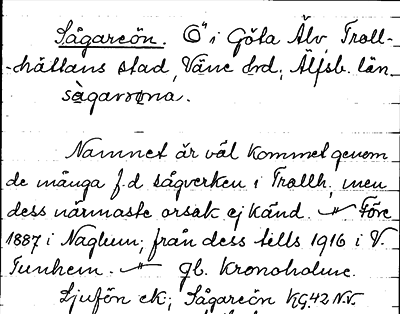 Sågareön. Ö i Göta Älv, Troll-
-hättans stad, Väne hrd, Älfsb. län.
sàgarøna.
Namnet är väl kommet genom
de många f.d sågverken i Trollh, men
dess närmaste orsak ej känd. Före
1887 i Naglum; från dess tills 1916 i V.
Tunhem. gb. Kronoholme.
Ljufön ek; Sågareön KG.42 N.V.